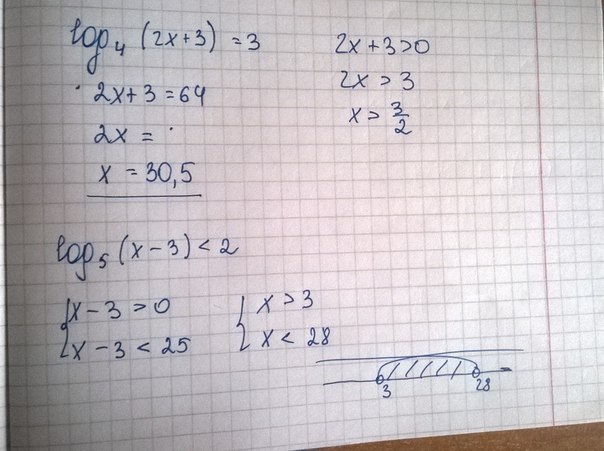 log₄ (2x+3) = 3
2x+3 = 64
2x =
x = 30,5
2x+3>0
2x > 3
x > 3/2
log₅ (x-3) < 2
{x-3 > 0
{x-3 < 25
{x > 3
{x < 28
3 28